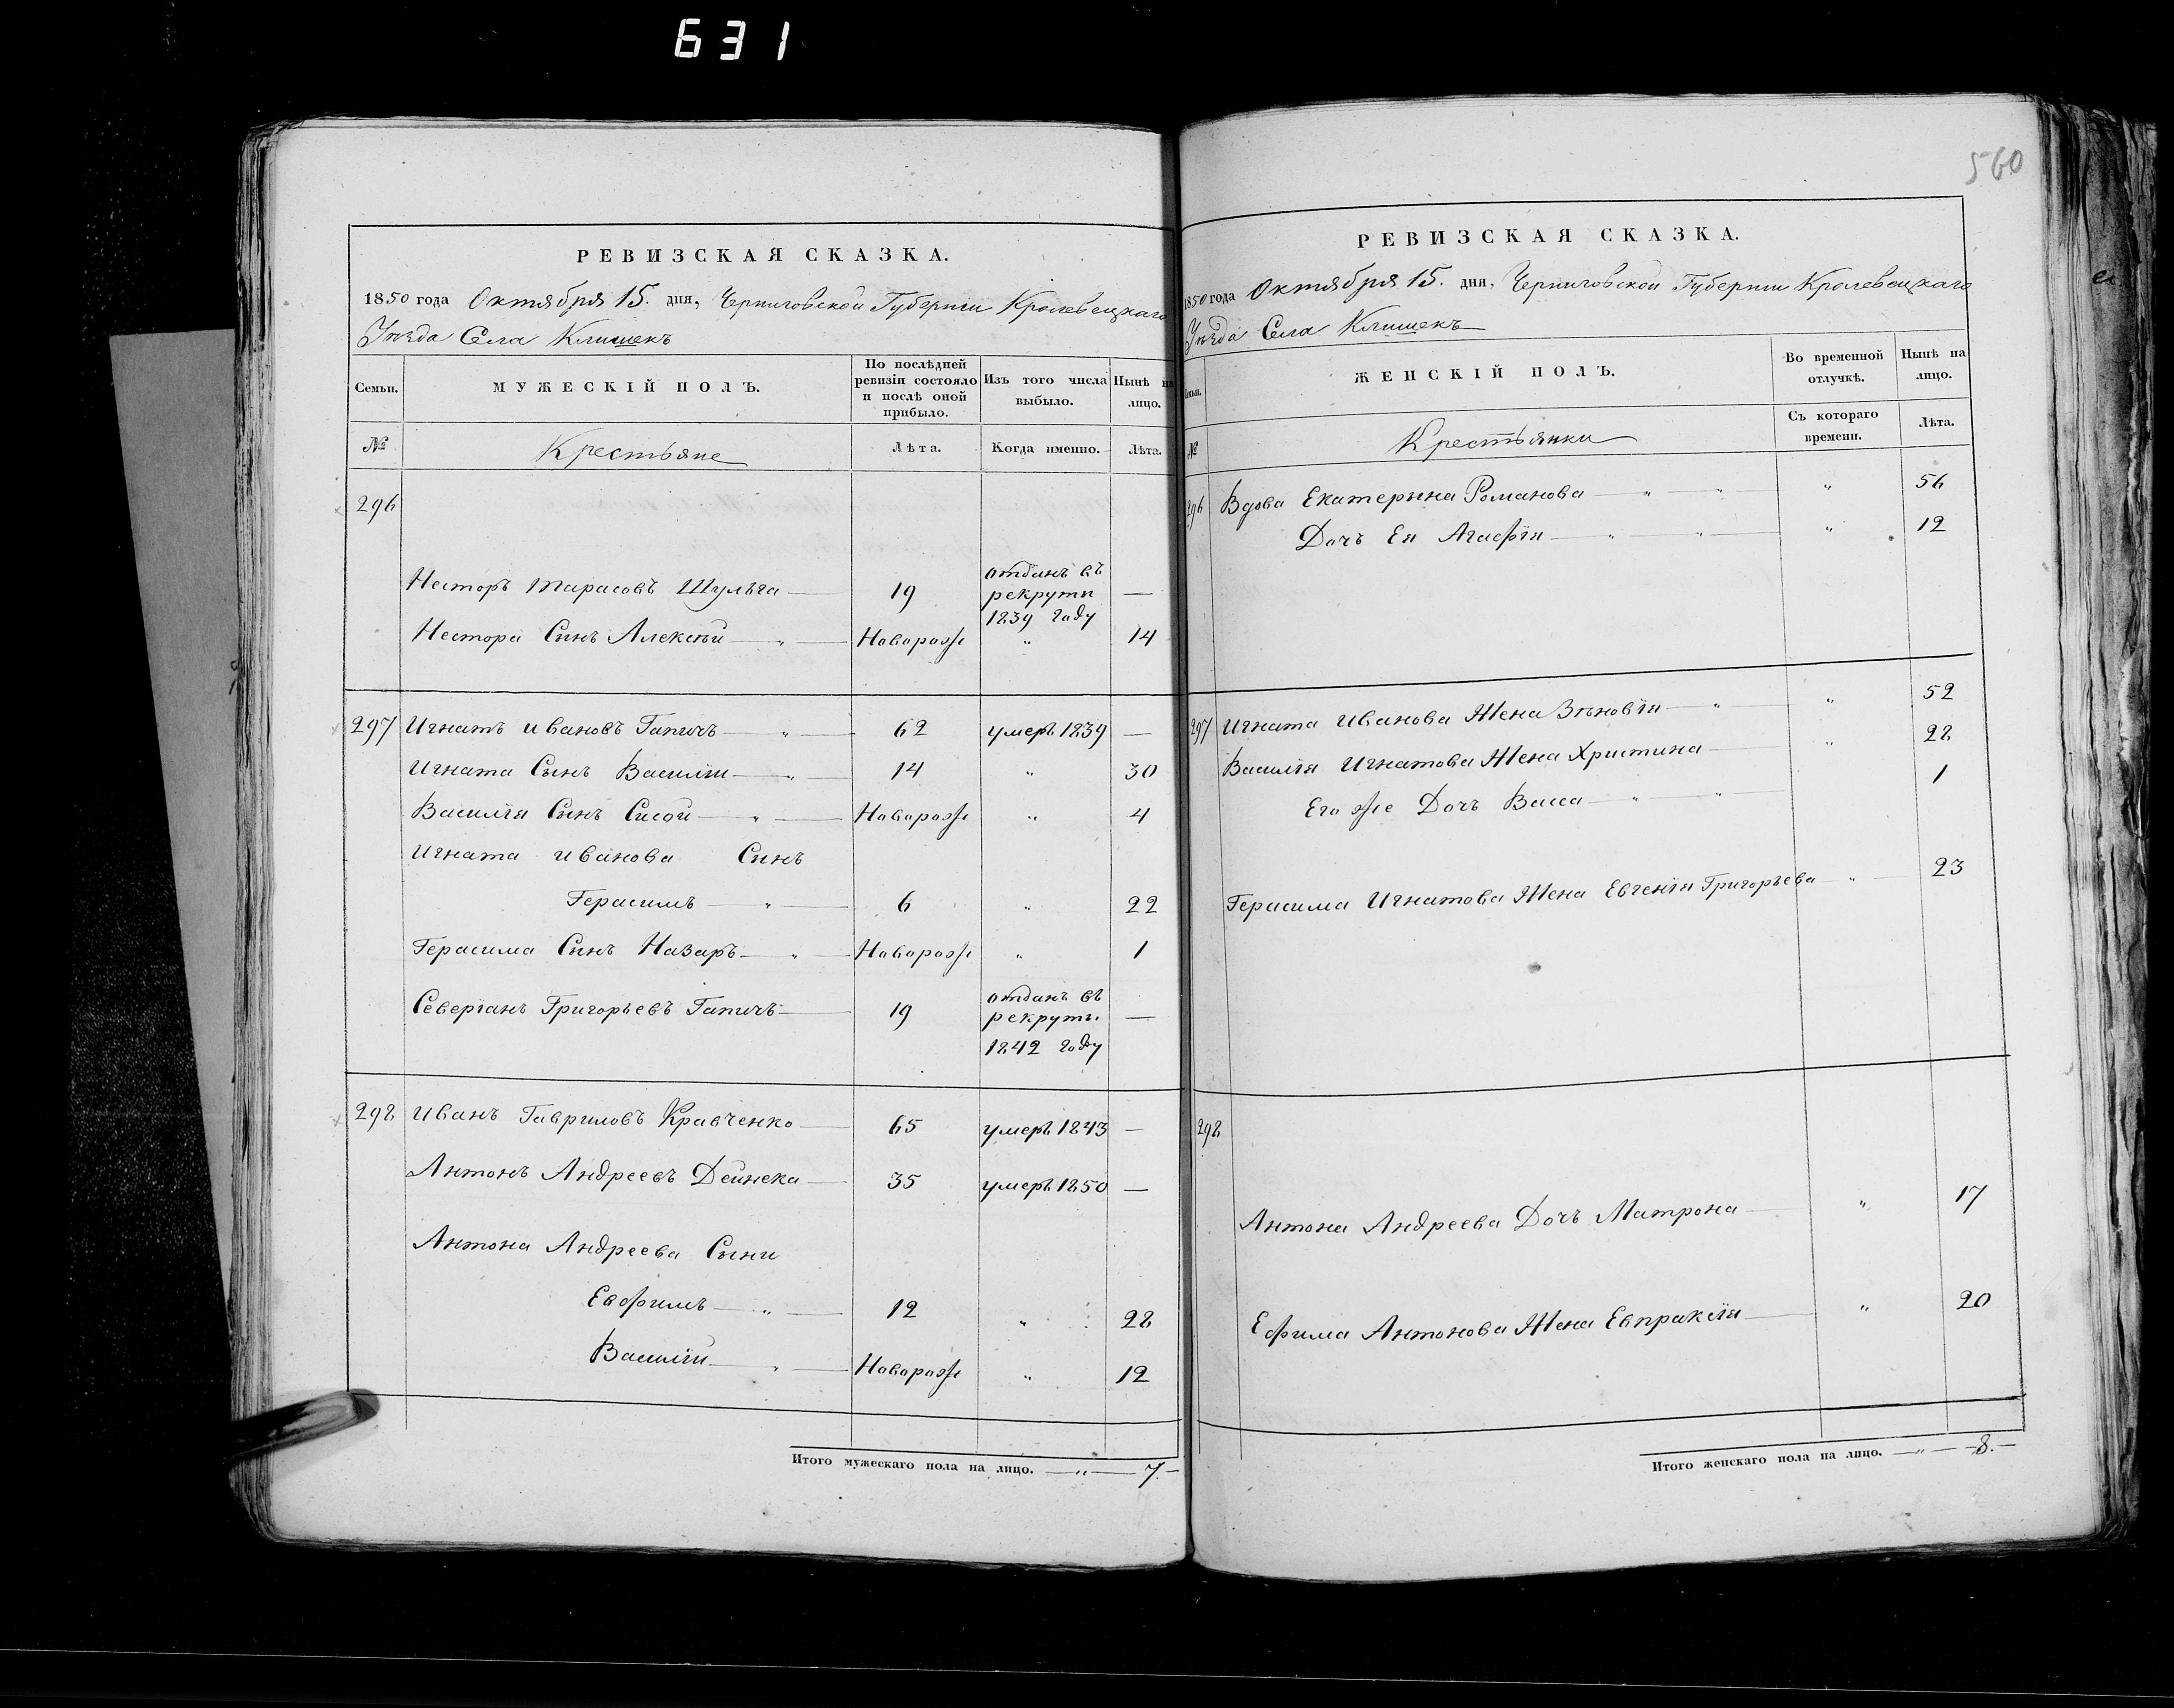 631
560
РЕВИЗСКАЯ СКАЗКА.
1850 года Октября 15. дня, Черниговской Губернии Кролевецкаго
Уѣзда Села Клишекъ
Семьи.
МУЖЕСКІЙ ПОЛЪ.
По послѣдней
ревизіи состояло
и послѣ оной
прибыло.
Изъ того числа
выбыло.
Нынѣ на
лицо.
№
Крестьяне
Лѣта.
Когда именно.
Лѣта.
296
Несторъ Тарасовъ Шульга 19 отданъ въ
рекруты
1839 году —
Нестора Сынъ Алексѣй " Новорож " 14
297 Игнатъ Ивановъ Гапичъ " 62 умеръ 1839 —
Игната Сынъ Василій " 14 " 30
Василія Сынъ Сисой " Новорож " 4
Игната Иванова Сынъ
Герасимъ " 6 " 22
Герасима Сынъ Назаръ " Новорож " 1
Северіанъ Григорьевъ Гапичъ 19 отданъ въ
рекруты.
1842 году —
298 Иванъ Гавриловъ Кравченко 65 умеръ 1843 —
Антонъ Андреевъ Дейнека 35 умеръ 1850 —
Антона Андреева Сыни
Евфимъ " 12 " 28
Василій " Новорож " 12
Итого мужескаго пола на лицо. — " — 7. —
РЕВИЗСКАЯ СКАЗКА.
1850 года Октября 15. дня, Черниговской Губернии Кролевецкаго
Уѣзда Села Клишекъ
Семьи.
ЖЕНСКІЙ ПОЛЪ.
Во временной
отлучкѣ.
Нынѣ на
лицо.
№
Крестьянки
Съ котораго
времени.
Лѣта.
296 Вдова Екатерына Романова " " " 56
Дочъ Ея Агафія " " " 12
297 Игната Иванова Жена Зѣновія " " 52
Василія Игнатова Жена Христина " 28
Его же Дочъ Васса " " 1
Герасима Игнатова Жена Евгенія Григорьева " 23
298
Антона Андреева Дочъ Матрона " 17
Ефима Антонова Жена Евпраксія " 20
Итого женскаго пола на лицо. — " — 8. —